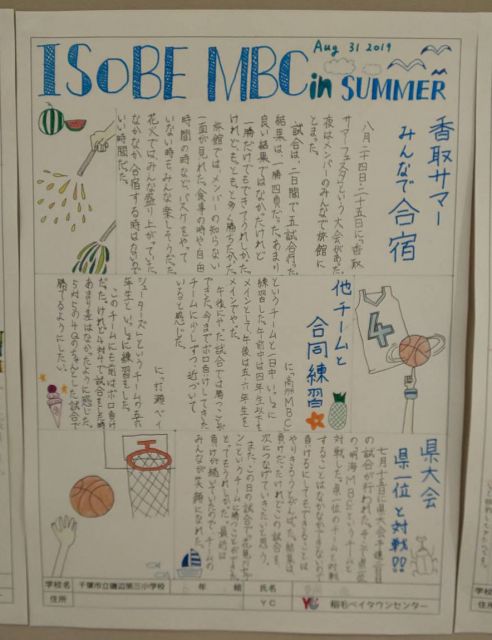 ISoBE MBC in SUMMER
Aug 31 2019
香取サマー
みんなで合宿
八月二十四日・二十五日に「香取
サマーフェスタ」という大会があった。
夜はメンバーのみんなで旅館に
とまった。
試合は、二日間で五試合行った。
結果は、一勝四負だった。あまり
良い結果ではなかったけれど
一勝だけでもできてうれしかった。
けれど、もっともっと多く勝ちたかった。
旅館では、メンバーの知らない
一面が見れた。食事の時や自由
時間の時など、バスケをやって
いない時もみんな楽しそうだった。
花火では、みんな盛り上がっていた。
なかなか合宿する時はないので
いい時間だった。
他チームと
合同練習
に、「高洲MBC」
というチームと一日中いっしょに
練習した。午前中は四年生以下を
メインとして、午後は五・六年生を
メインでやった。
午後にやった試合では勝つことが
できた。今までボロ負けしてきた
チームに少しずつ近づいて
いると感じた。
に、「打瀬ベイ
シューターズ」というチームの五六
年生といっしょに練習をもした。
このチームにも前はボロ負け
だった。けれど4対4で試合をした時
あまり差はなかったように感じた。
5対5の4Qのちゃんとした試合で
勝てるようにしたい。
県大会
県一位と対戦!!
七月十五日に県大会予選二日目
の試合が行われた。千葉県一位
の「明海MBC」というチームと
対戦した。県一位のチームと対戦
することはなかなかできないので
負けるにしてもできることは
やりきろうとがんばった。結果は
負けだったけれどこの試合を
次につなげていきたいと思う。
また、この日の試合で「花見川
」というチームに勝つことができた。
とてもうれしかった。最近は
負けが続いていたので、チームの
みんなが笑顔になれた。
4
学校名 千葉市立磯辺第三小学校 年 組 氏名
住所 YC YC 稲毛ベイタウンセンター